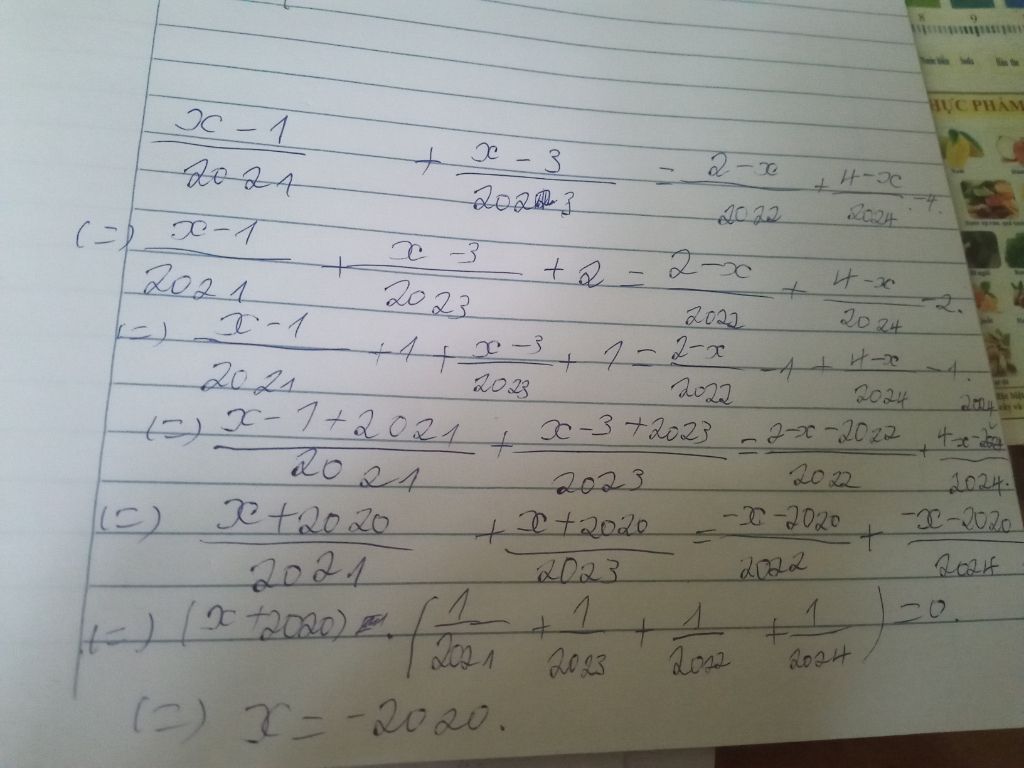 8 9
HỰC PHẨM
(x-1)/2021 + (x-3)/2023 = (2-x)/2022 + (4-x)/2024 - 4.
(=) (x-1)/2021 + (x-3)/2023 + 2 = (2-x)/2022 + (4-x)/2024 - 2.
(=) (x-1)/2021 + 1 + (x-3)/2023 + 1 = (2-x)/2022 - 1 + (4-x)/2024 - 1.
(=) (x-1+2021)/2021 + (x-3+2023)/2023 = (2-x-2022)/2022 + (4-x-2024)/2024.
(=) (x+2020)/2021 + (x+2020)/2023 = (-x-2020)/2022 + (-x-2020)/2024
(=) (x+2020) . (1/2021 + 1/2023 + 1/2022 + 1/2024) = 0.
(=) x = -2020.